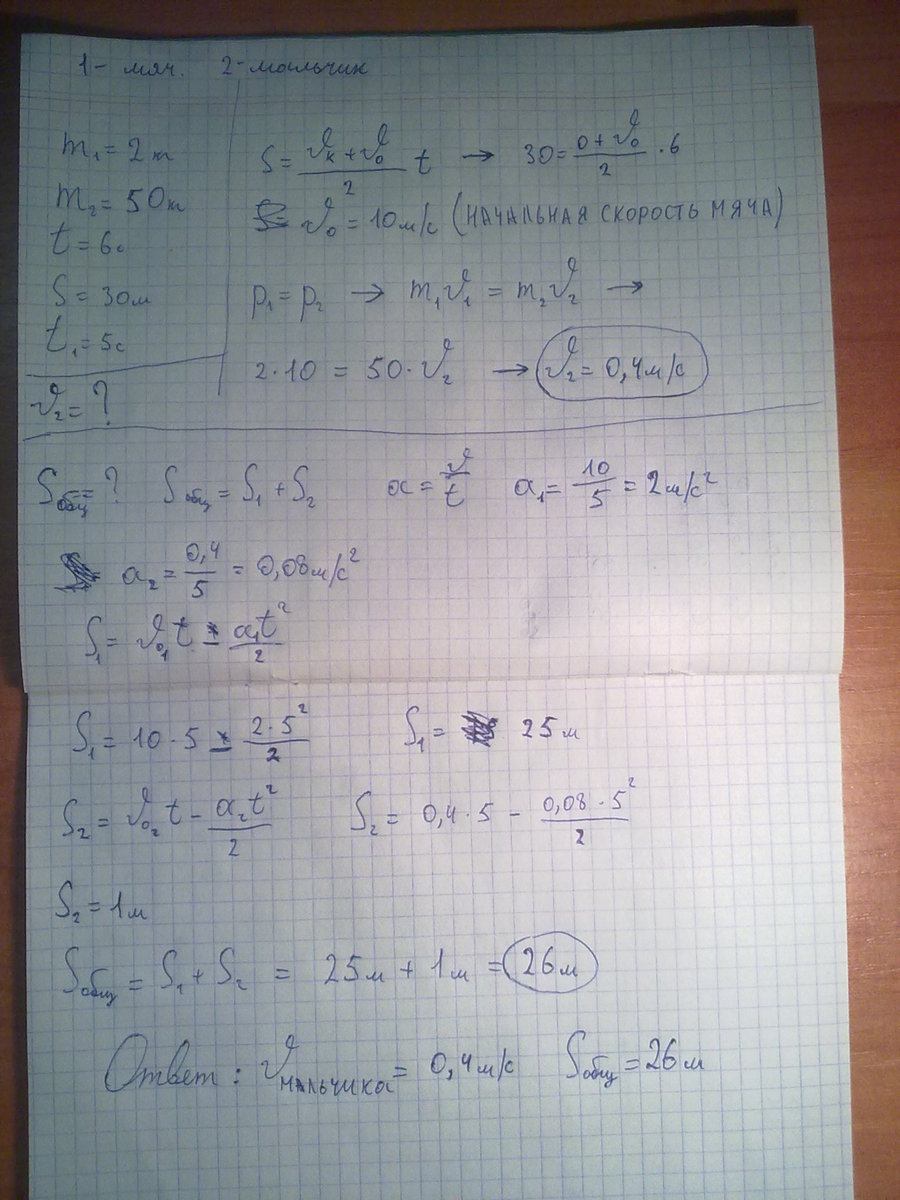 1 - мяч. 2 - мальчик
m₁ = 2 кг
m₂ = 50 кг
t = 6с
S = 30м
t₁ = 5с
v₂ = ?
S = (vк + v₀)/2 t → 30 = (0 + v₀)/2 · 6
v₀ = 10 м/с (НАЧАЛЬНАЯ СКОРОСТЬ МЯЧА)
p₁ = p₂ → m₁v₁ = m₂v₂ →
2 · 10 = 50 · v₂ → v₂ = 0,4 м/с
Sобщ = ? Sобщ = S₁ + S₂ a = v/t a₁ = 10/5 = 2 м/с²
a₂ = 0,4/5 = 0,08 м/с²
S₁ = v₀₁t - a₁t²/2
S₁ = 10 · 5 - 2 · 5²/2 S₁ = 25 м
S₂ = v₀₂t - a₂t²/2 S₂ = 0,4 · 5 - 0,08 · 5²/2
S₂ = 1м
Sобщ = S₁ + S₂ = 25м + 1м = 26м
Ответ: vмальчика = 0,4 м/с Sобщ = 26м